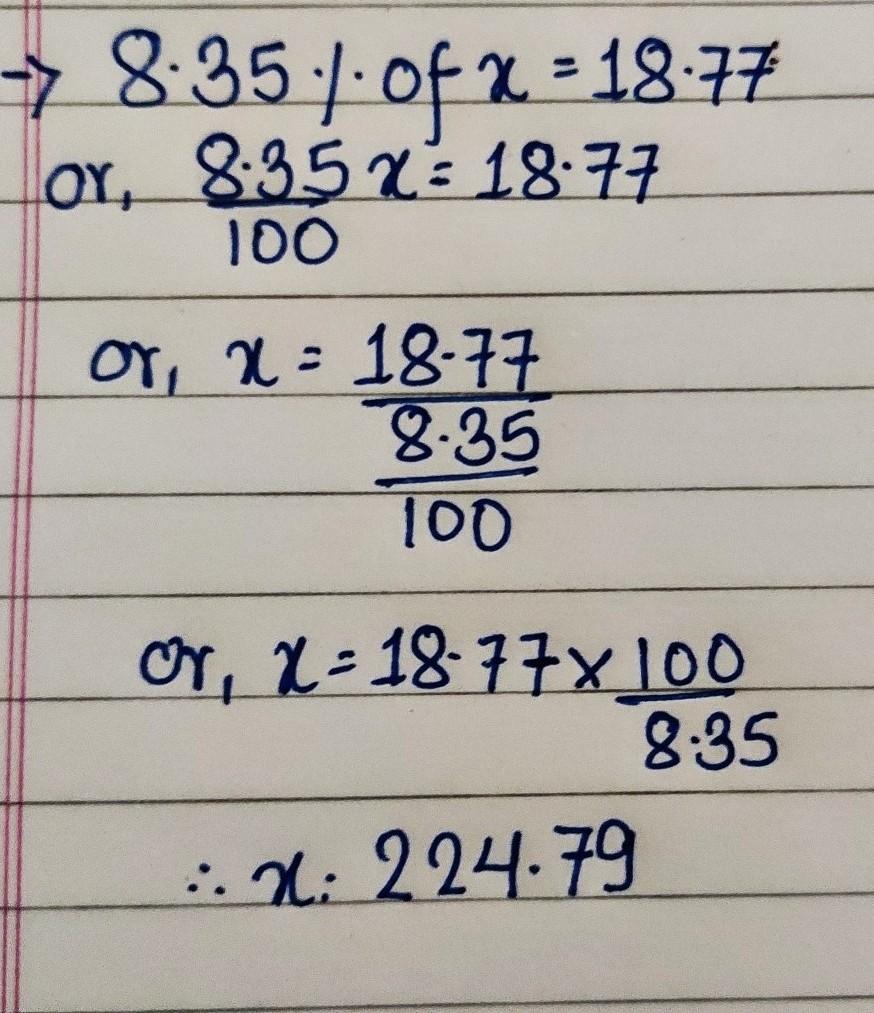 → 8.35 % of x = 18.77
or, 8.35/100 x = 18.77
or, x = 18.77
8.35
100
or, x = 18.77 × 100/8.35
∴ x: 224.79